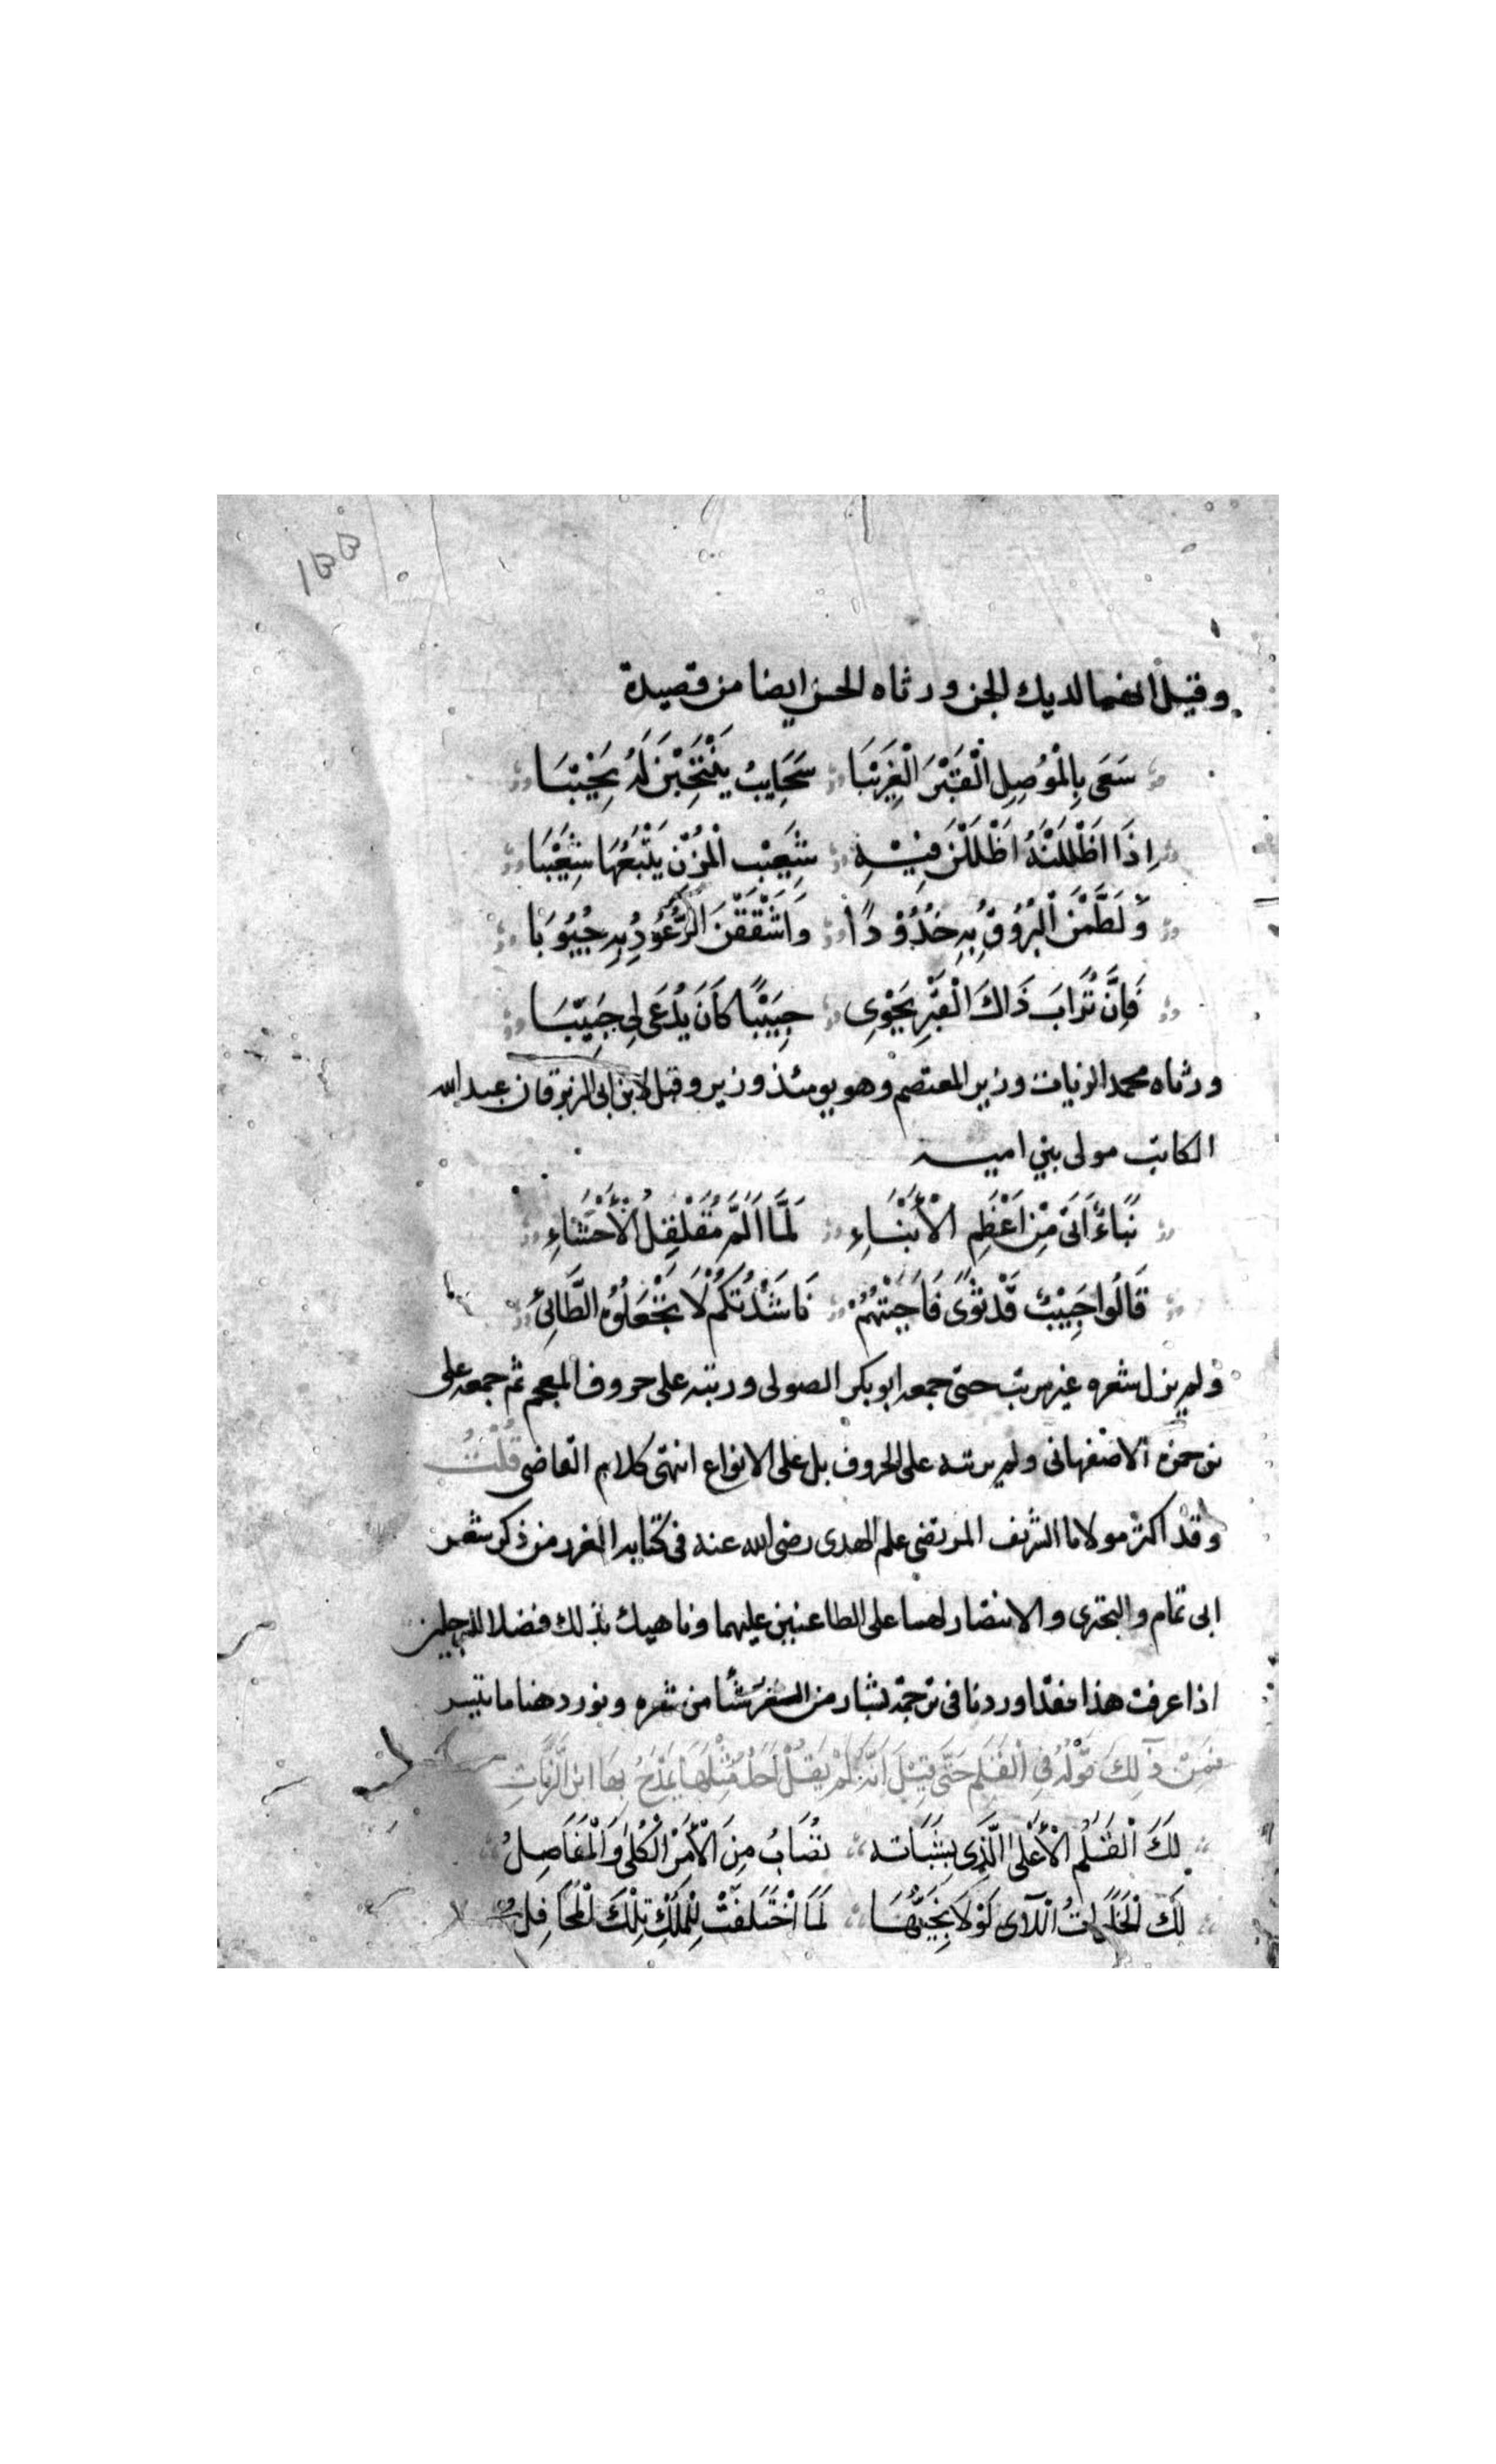 ١٥٥
وقيل انهما لديك الجن ورثاه الحسن ايضا من قصيدة
سَقَى بِالْمَوْصِلِ الْقَبْرَ الْغَرِيْبَا سَحَايِبُ يَنْتَحِبْنَ لَهُ نَحِيْبَا
اِذَا اَظْلَلْنَهُ اَظْلَلْنَ فِيْهِ شَعِيْبَ الْمُزْنِ يَتْبَعُهَا شَعِيْبَا
وَلَطَّمْنَ الْبُرُوْقُ بِهِ خُدُوْدًا وَاَشْقَقْنَ الرُّعُوْدُ بِهِ جُيُوْبَا
فَاِنَّ تُرَابَ ذَاكَ الْقَبْرِ يَحْوِى حَبِيْبًا كَانَ يُدْعَى لِى حَبِيْبَا
ورثاه محمد الزيات وزير المعتصم وهو يومئذ وزير وقيل لابن ابى الزبرقان عبد الله
الكاتب مولى بني اميه
نَبَاءٌ اَتَى مِنْ اَعْظَمِ الْأَنْبَاءِ لَمَّا اَلَمَّ مُقَلْقِلُ الْأَحْشَاءِ
قَالُوا حَبِيْبٌ قَدْ ثَوَى فَاَجَبْتُهُمْ نَاشَدْتُكُمْ لَا تَجْعَلُوْهُ الطَّائِىْ
ولم يزل شعره غير مرتب حتى جمعه ابو بكر الصولى ورتبه على حروف المعجم ثم جمعه على
بن حمزه الاصفهانى ولم يرتبه على الحروف بل على الانواع انتهى كلام القاضى قُلْتُ
وقد اكثر مولانا الشريف المرتضى علم الهدى رضى الله عنه فى كتابه الغرر من ذكر شعر
ابى تمام والبحترى والانتصار لهما على الطاعنين عليهما وناهيك بذلك فضلا للرجلين
اذا عرفت هذا فقد اوردنا فى ترجمة بشار من الشعر شيأ من شعره ونورد هنا ما تيسر
فَمِنْ ذٰلِكَ قَوْلُهُ فِى الْقَلَمِ حَتَّى قِيْلَ اَنَّهُ لَمْ يَقُلْ اَحَدٌ مِثْلَهَا يَمْدَحُ بِهَا ابْنَ الزَّيَّاتِ
لَكَ الْقَلَمُ الْأَعْلَى الَّذِى بِشَبَاتِه تُصَابُ مِنَ الْأَمْرِ الْكُلَى وَالْمَفَاصِلُ
لَكَ الْخَلَوَاتُ اللَّاى لَوْلَا نَجِيُّهَا لَمَا اخْتَلَفَتْ لِلْمُلْكِ تِلْكَ الْمَحَافِلُ